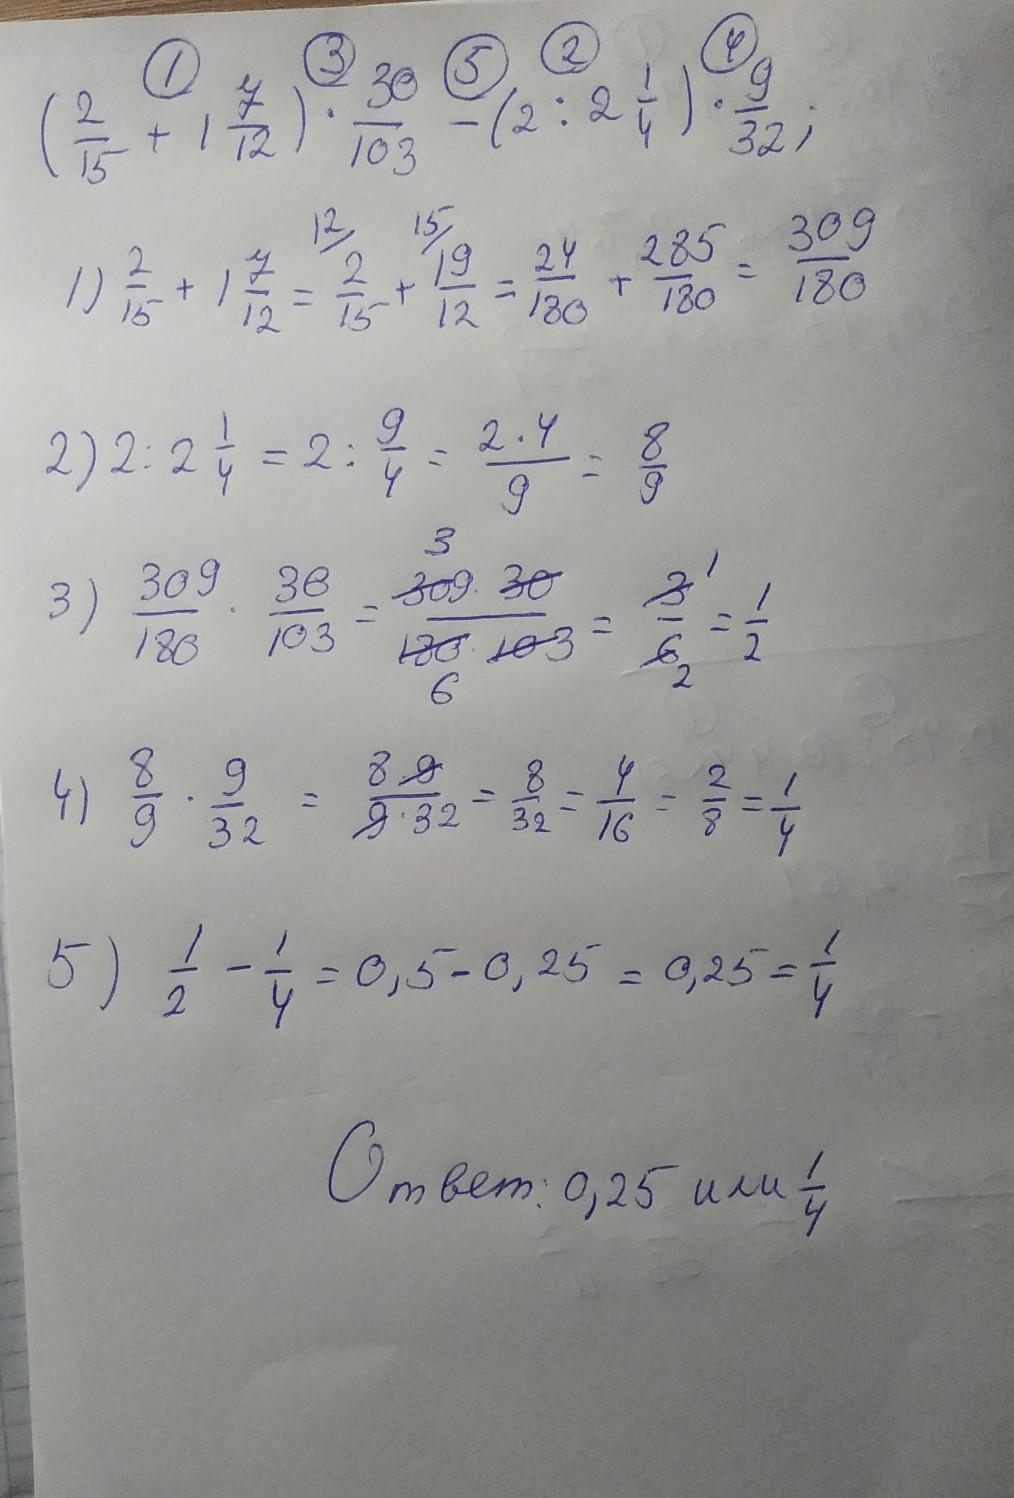 ① ③ ⑤ ② ④
(2/15 + 1 7/12) · 30/103 - (2 : 2 1/4) · 9/32;
1) 2/15 + 1 7/12 = 12/ 2/15 + 15/ 19/12 = 24/180 + 285/180 = 309/180
2) 2 : 2 1/4 = 2 : 9/4 = 2·4/9 = 8/9
3) 309/180 · 30/103 = 3 309·30/180·103 6 = 3 1/6 2 = 1/2
4) 8/9 · 9/32 = 8·9/9·32 = 8/32 = 4/16 = 2/8 = 1/4
5) 1/2 - 1/4 = 0,5 - 0,25 = 0,25 = 1/4
Ответ: 0,25 или 1/4